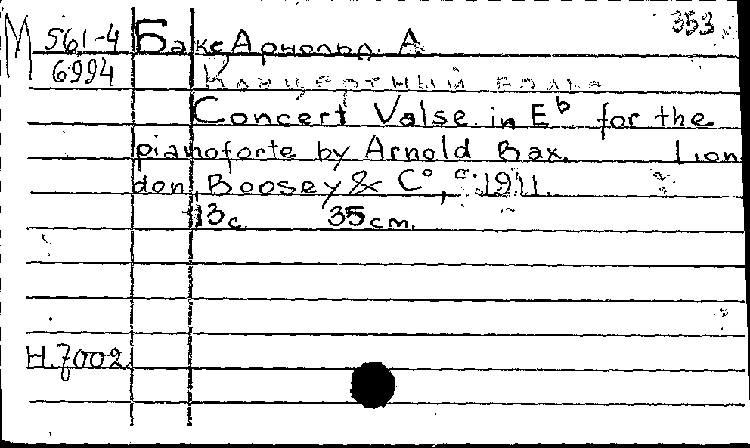 353
М 561-4 Бакс Арнольд. А
6994 Концертный вальс
Concert Valse in E♭ for the
pianoforte by Arnold Bax. Lon
don, Boosey & C°, c. 1911.
13 с 35 cm.
H.7002